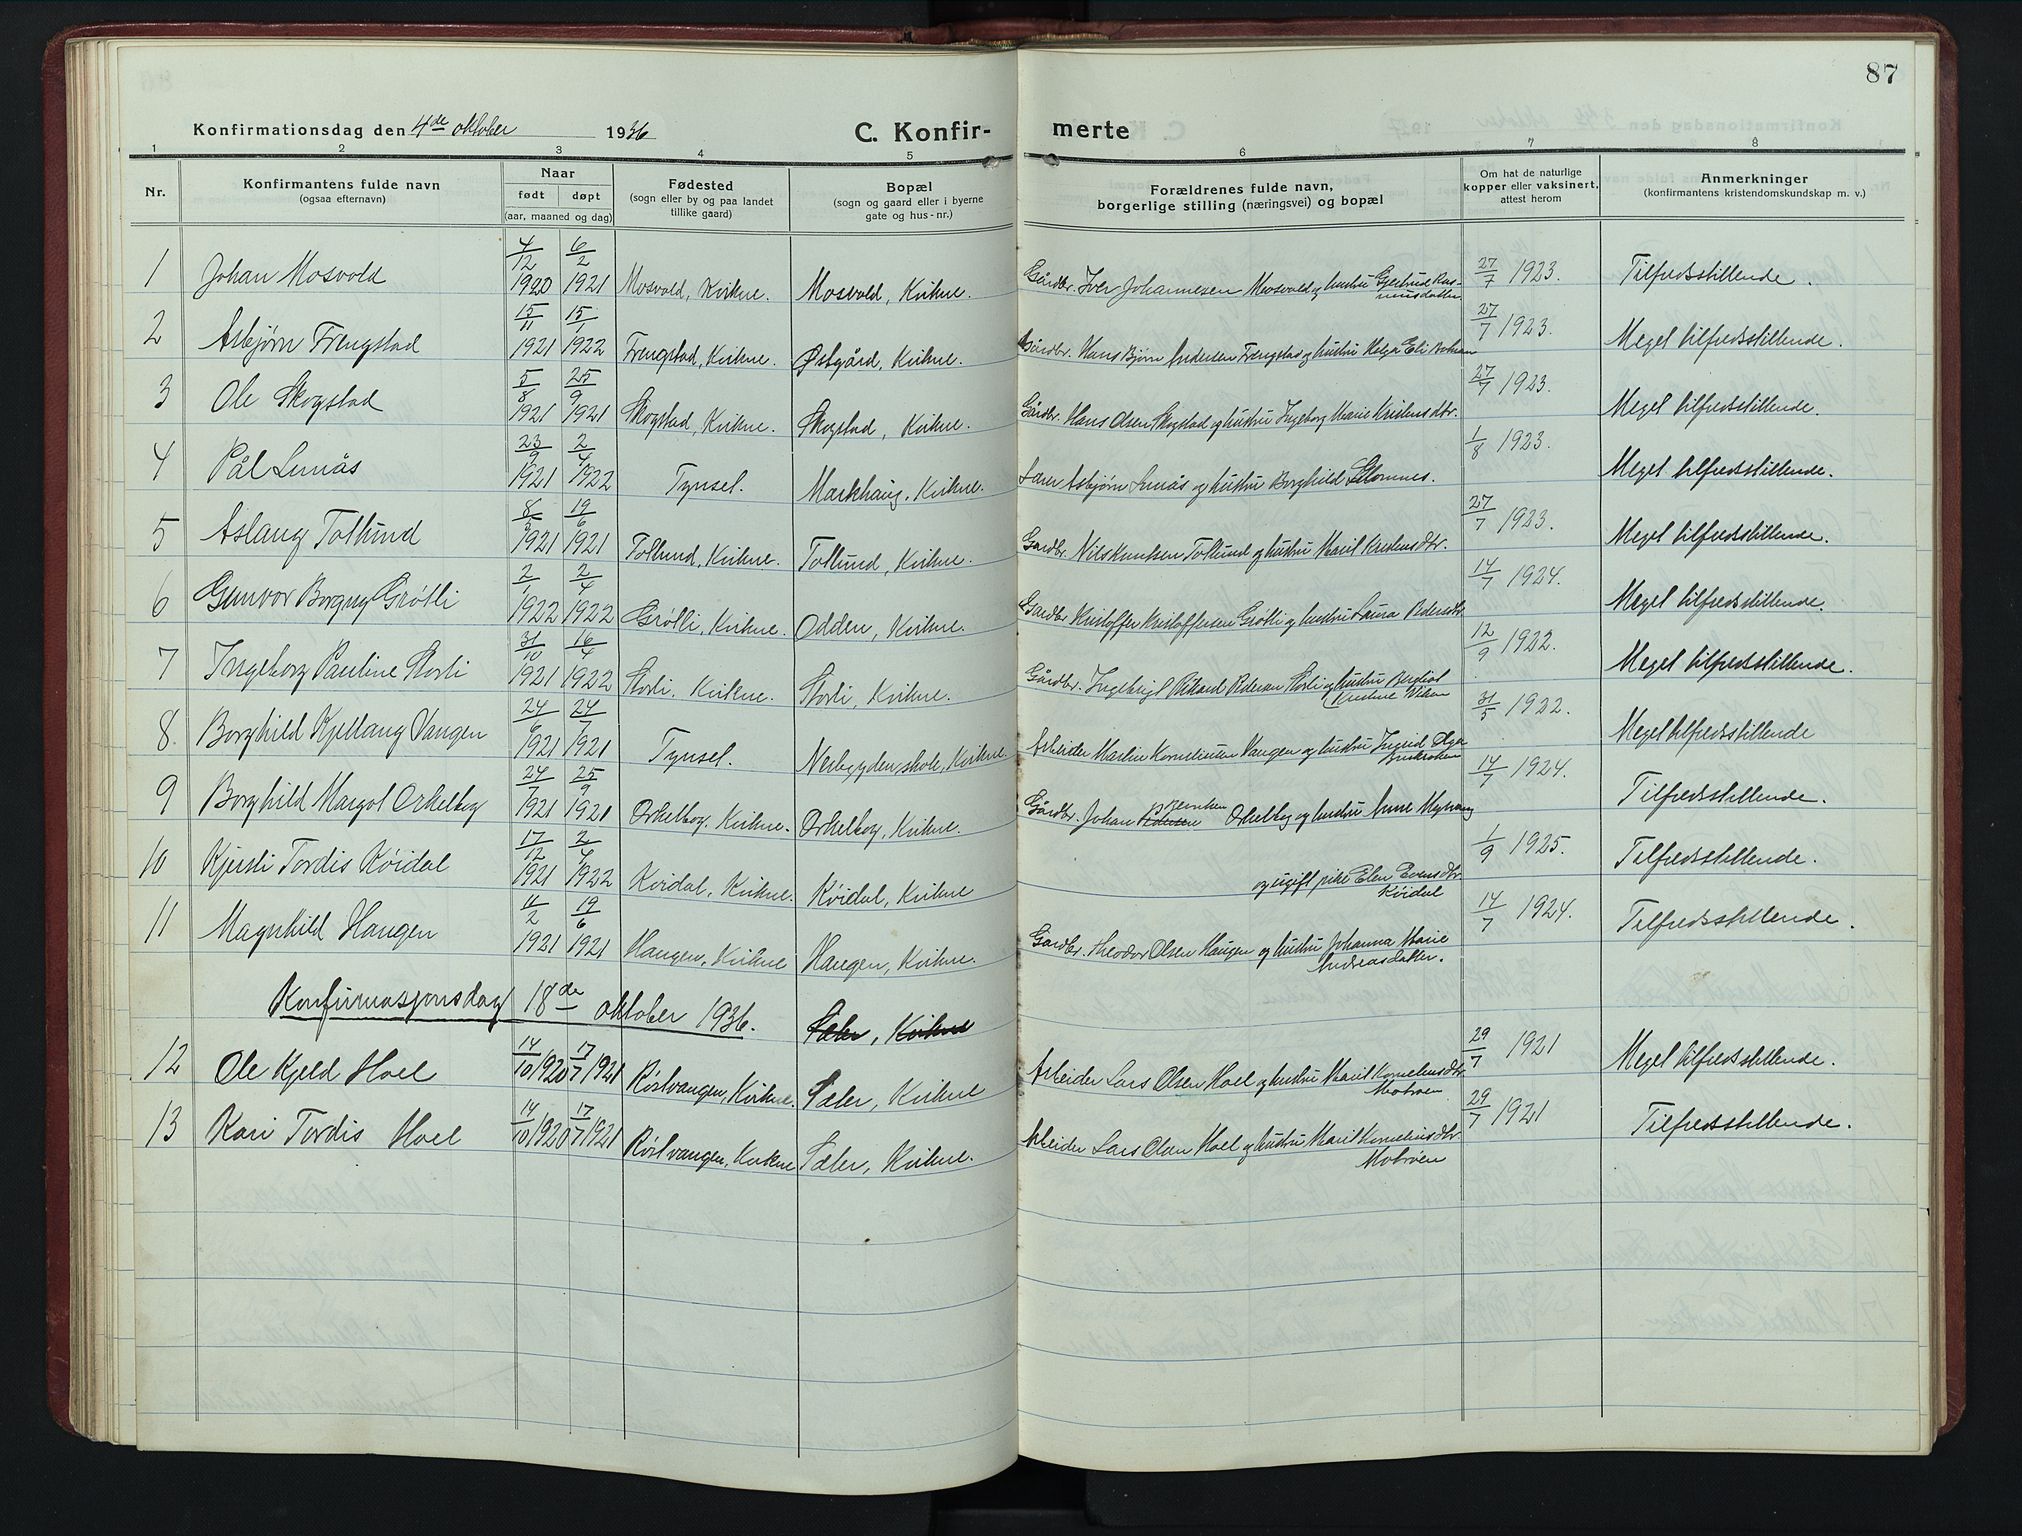 87
Konfirmationsdag den 4de oktober 1936 C. Konfir- merte
1 2 3 4 5 6 7 8
Nr. Konfirmantens fulde navn (ogsaa efternavn) Naar født døpt (aar, maaned og dag) Fødested (sogn eller by og paa landet tillike gaard) Bopæl (sogn og gaard eller i byerne gate og hus-nr.) Forældrenes fulde navn, borgerlige stilling (næringsvei) og bopæl Om hat de naturlige kopper eller vaksinert, attest herom Anmerkninger (konfirmantens kristendomskundskap m. v.)
1 Johan Mosvold 4/12 1920 6/2 1921 Mosvold, Kvikne. Mosvold, Kvikne. Gårdbr. Iver Johannesen Mosvold og hustru Gjertrud Rasmusdatter 27/7 1923. Tilfredsstillende.
2 Asbjørn Frengstad 15/11 1921 15/1 1922 Frengstad, Kvikne. Østgård, Kvikne. Gårdbr. Hans Bjørn Andersen Frengstad og hustru Helga Eli 27/7 1923. Meget tilfredsstillende.
3 Ole Skogstad 5/8 1921 25/9 1921 Skogstad, Kvikne. Skogstad, Kvikne. Gårdbr. Hans Olsen Skogstad og hustru Ingeborg Marie Kristensdtr. 27/7 1923. Meget tilfredsstillende.
4 Pål Lunås 23/9 1921 2/4 1922 Tynset. Markhaug, Kvikne. Lærer Asbjørn Lunås og hustru Borghild Glomnes. 1/8 1923. Meget tilfredsstillende.
5 Aslaug Tollund 8/3 1921 19/6 1921 Tollund, Kvikne. Tollund, Kvikne. Gardbr. Nils Knutsen Tollund og hustru Marit Kristensdtr. 27/7 1923. Meget tilfredsstillende.
6 Gunvor Borgny Grøtli 2/1 1922 2/4 1922 Grøtli, Kvikne. Odden, Kvikne. Gardbr. Kristoffer Kristoffersen Grøtli og hustru Laura Pedersdtr. 14/7 1924. Meget tilfredsstillende.
7 Ingeborg Pauline Storli 31/10 1921 16/4 1922 Storli, Kvikne. Storli, Kvikne. Gårdbr. Ingebrigt Rikard Pedersen Storli og hustru Bergliot Kristine 12/9 1922. Meget tilfredsstillende.
8. Borghild Kjellaug Vangen 24/6 1921 24/7 1921 Tynset. Nesbygden skole, Kvikne. Arbeider Martin Korneliusen Vangen og hustru Ingrid Olga 31/5 1922. Meget tilfredsstillende
9 Borghild Margot Orkelbog 24/7 1921 25/9 1921 Orkelbog, Kvikne. Orkelbog, Kvikne. Gårdbr. Johan Pedersen Orkelbog og hustru Anne 14/7 1924. Tilfredsstillende.
10 Kjersti Tordis Køidal 17/12 1921 2/4 1922 Køidal, Kvikne. Køidal, Kvikne og ugift pike Elen Evensdtr. Køidal 1/9 1925. Tilfredsstillende.
11 Magnhild Haugen 11/2 1921 19/6 1921 Haugen, Kvikne Haugen, Kvikne. Gårdbr. Theodor Olsen Haugen og hustru Johanna Marie Andreasdatter. 14/7 1924. Tilfredsstillende.
Konfirmasjonsdag 18de oktober 1936. Sæter, Kvikne
12 Ole Kjeld Hoel 14/10 1920 17/7 1921 Røstvangen, Kvikne. Sæter, Kvikne Arbeider Lars Olsen Hoel og hustru Marit Korneliusdtr. Motrøen 29/7 1921 Meget tilfredsstillende.
13 Kari Tordis Hoel 14/10 1920 17/7 1921 Røstvangen, Kvikne Sæter, Kvikne. Arbeider Lars Olsen Hoel og hustru Marit Korneliusdtr. Motrøen 29/7 1921 Tilfredsstillende.